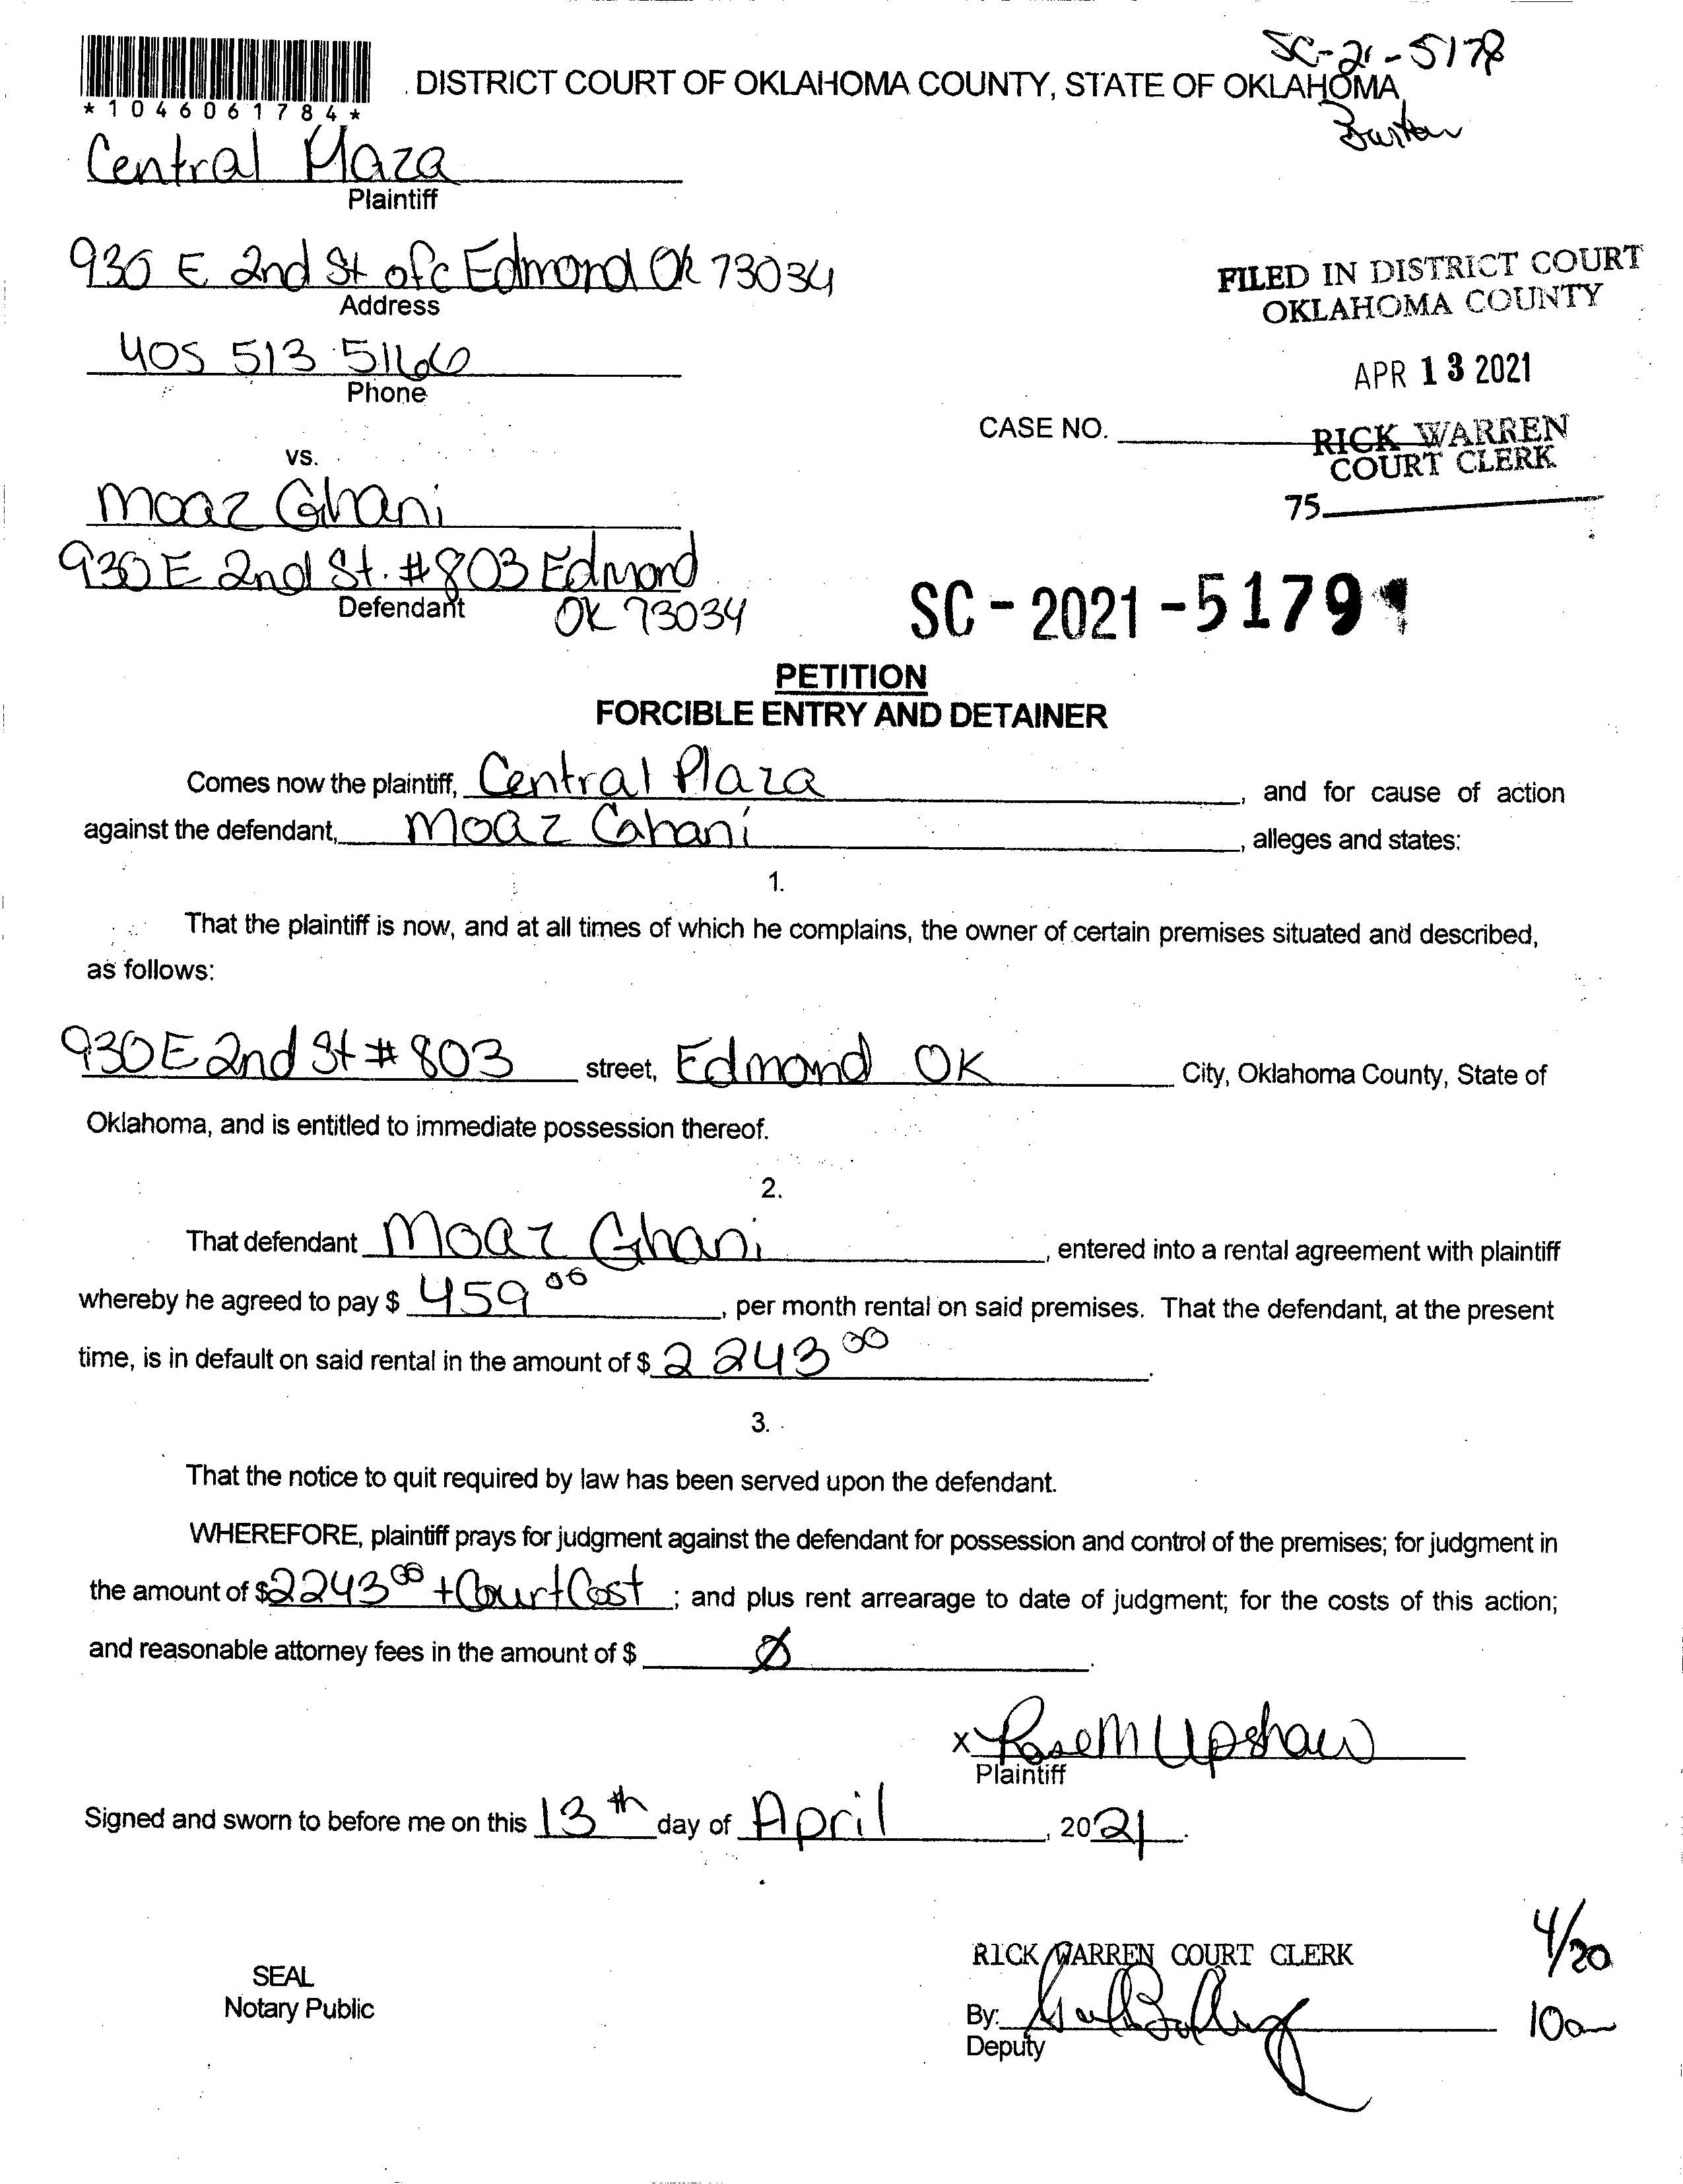 SC-21-5178
*1046061784*
DISTRICT COURT OF OKLAHOMA COUNTY, STATE OF OKLAHOMA
Central Plaza
Plaintiff
930 E 2nd St ofc Edmond Ok 73034
Address
405 513 5166
Phone
FILED IN DISTRICT COURT
OKLAHOMA COUNTY
APR 13 2021
CASE NO.
RICK WARREN
COURT CLERK
75
vs.
Moaz Ghani
930 E 2nd St. #803 Edmond
Defendant OK 73034
SC - 2021 - 5179
PETITION
FORCIBLE ENTRY AND DETAINER
Comes now the plaintiff, Central Plaza, and for cause of action
against the defendant, Moaz Ghani, alleges and states:
1.
That the plaintiff is now, and at all times of which he complains, the owner of certain premises situated and described,
as follows:
930 E 2nd St # 803 street, Edmond OK City, Oklahoma County, State of
Oklahoma, and is entitled to immediate possession thereof.
2.
That defendant Moaz Ghani, entered into a rental agreement with plaintiff
whereby he agreed to pay $ 459 00, per month rental on said premises. That the defendant, at the present
time, is in default on said rental in the amount of $ 2243 00.
3.
That the notice to quit required by law has been served upon the defendant.
WHEREFORE, plaintiff prays for judgment against the defendant for possession and control of the premises; for judgment in
the amount of $2243 00 + Court Cost; and plus rent arrearage to date of judgment; for the costs of this action;
and reasonable attorney fees in the amount of $ Ø.
x Rose M Upshaw
Plaintiff
Signed and sworn to before me on this 13th day of April, 2021.
4/20
RICK WARREN COURT CLERK
SEAL
Notary Public
By:
10a
Deputy